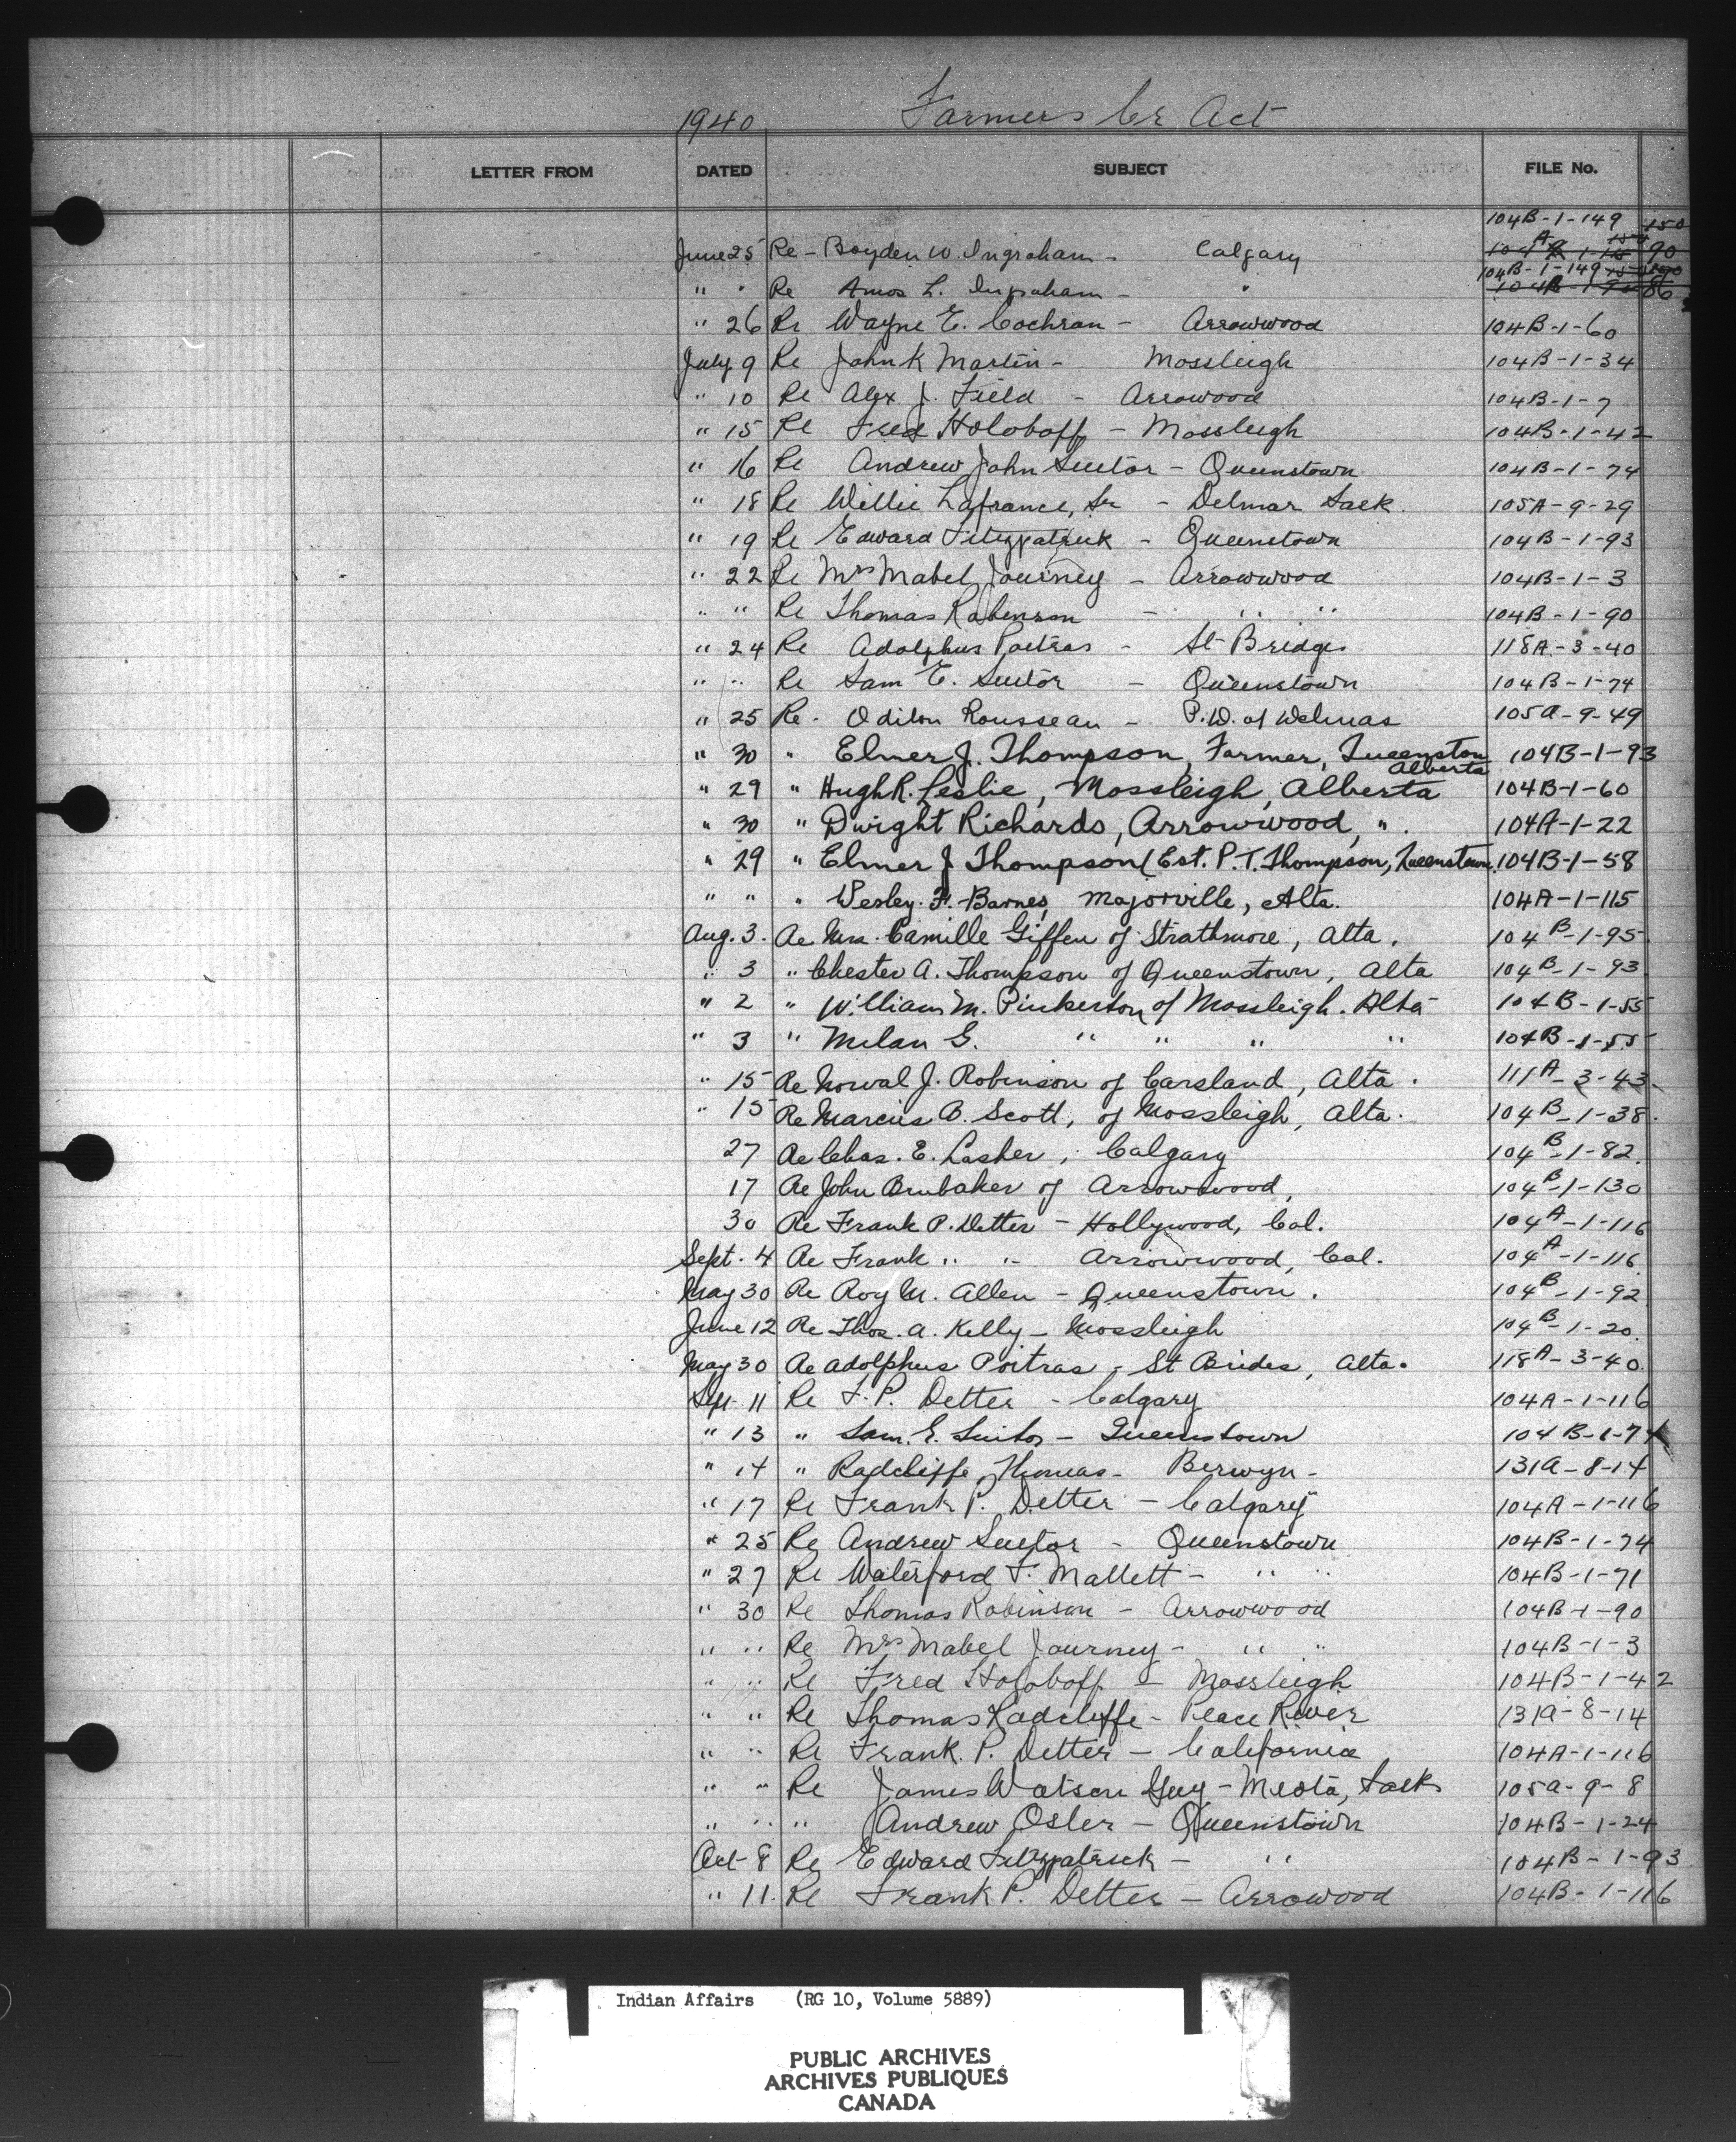 1940 Farmers Cr Act
LETTER FROM DATED SUBJECT FILE No.
104B-1-149 150
June 25 Re - Boyden W. Ingraham - Calgary 90
104B-1-149
" " Re Amos L. Ingraham - " 86
" 26 Re Wayne E. Cochran - Arrowwood 104B-1-60
July 9 Re John K Martin - Mossleigh 104B-1-34
" 10 Re Alex J. Field - Arrowood 104B-1-7
" 15 Re Fred Holoboff - Mossleigh 104B-1-42
" 16 Re Andrew John Suitor - Queenstown 104B-1-74
" 18 Re Willie Lafrance, Sr - Delmar Sask. 105A-9-29
" 19 Re Edward Fitzpatrick - Queenstown 104B-1-93
" 22 Re Mrs Mabel Journey - Arrowwood 104B-1-3
" " Re Thomas Robinson - " " 104B-1-90
" 24 Re Adolphus Poitras - St Brides 118A-3-40
" " Re Sam E. Suitor - Queenstown 104B-1-74
" 25 Re. Odilon Rousseau - P.W. of Delmas 105A-9-49
" 30 " Elmer J. Thompson, Farmer, Queenston Alberta 104B-1-93
" 29 " Hugh R. Leslie, Mossleigh, Alberta 104B-1-60
" 30 " Dwight Richards, Arrowwood, ". 104A-1-22
" 29 " Elmer J Thompson (Est. P.T. Thompson, Queenstown. 104B-1-58
" " " Wesley. F. Barnes, Majorville, Alta. 104A-1-115
Aug. 3. Re Mrs. Camille Giffen of Strathmore, Alta. 104B-1-95
" 3 " Chester A. Thompson of Queenstown, Alta 104B-1-93
" 2 " William M. Pinkerton of Mossleigh. Alta 104B-1-55
" 3 " Milan G. " " " " 104B-1-55
" 15 Re Norval J. Robinson of Carsland, Alta. 111A-3-43
" 15 Re Marcus B. Scott, of Mossleigh, Alta. 104B-1-38.
27 Re Chas. E. Lasher, Calgary 104B-1-82.
17 Re John Brubaker of Arrowwood, 104B-1-130
30 Re Frank P. Detter - Hollywood, Cal. 104A-1-116
Sept. 4 Re Frank " " Arrowwood, Cal. 104A-1-116
May 30 Re Roy M. Allen - Queenstown. 104B-1-92
June 12 Re Thos. A. Kelly - Mossleigh 104B-1-20.
May 30 Re Adolphus Poitras - St Brides, Alta. 118A-3-40.
Sept 11 Re F. P. Detter - Calgary 104A-1-116
" 13 " Sam. E. Suitor - Queenstown 104B-1-74
" 14 " Radcliffe, Thomas - Berwyn - 131A-8-14
" 17 Re Frank P. Detter - Calgary 104A-1-116
" 25 Re Andrew Suitor - Queenstown 104B-1-74
" 27 Re Waterford F. Mallett - " " 104B-1-71
" 30 Re Thomas Robinson - Arrowwood 104B-1-90
" " Re Mrs Mabel Journey - " " 104B-1-3
" " Re Fred Holoboff - Mossleigh 104B-1-42
" " Re Thomas Radcliffe - Peace River 131A-8-14
" " Re Frank. P. Detter - California 104A-1-116
" " Re James Watson Guy - Meota, Sask 105A-9-8
" " " Andrew Osler - Queenstown 104B-1-24
Oct 8 Re Edward Fitzpatrick - " 104B-1-93
" 11. Re Frank P. Detter - Arrowood 104B-1-116
Indian Affairs (RG 10, Volume 5889)
PUBLIC ARCHIVES
ARCHIVES PUBLIQUES
CANADA